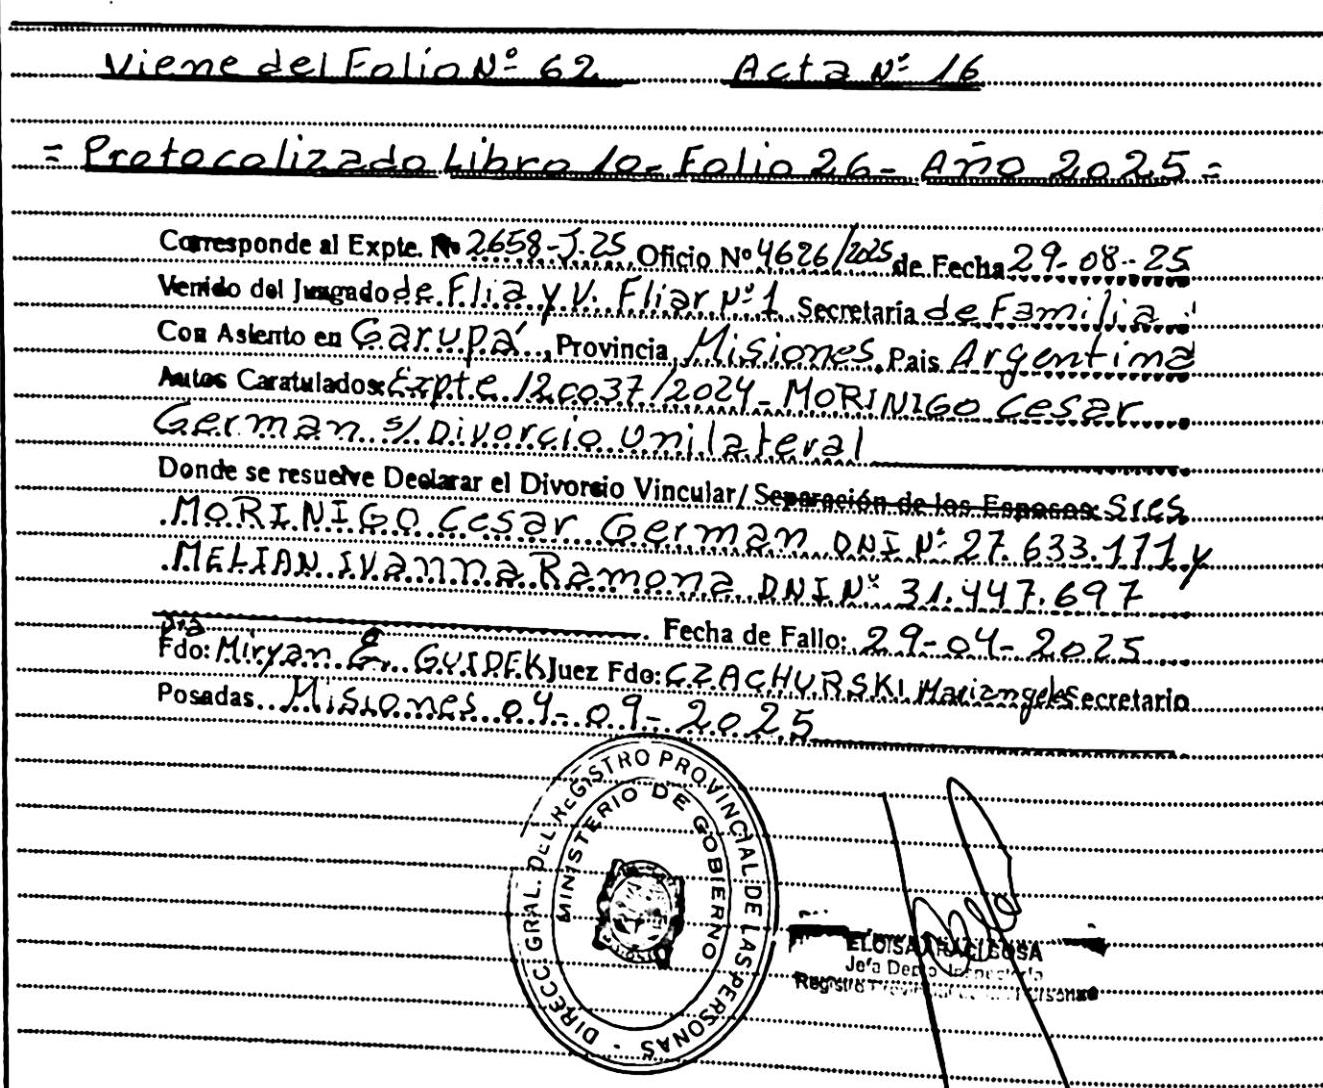 Viene del Folio Nº 62 Acta Nº 16
= Protocolizado Libro 10 - Folio 26 - Año 2025 =
Corresponde al Expte. Nº 2658-J.25 Oficio Nº 4626/2025 de Fecha 29-08-25
Venido del Juzgado de Flia y V. Fliar Nº 1 Secretaría de Familia
Con Asiento en Garupá, Provincia Misiones, País Argentina
Autos Caratulados: Expte 120037/2024 - MORINIGO Cesar
German s/ Divorcio Unilateral
Donde se resuelve Declarar el Divorcio Vincular/ Separación de los Esposos: Sres
MORINIGO Cesar German DNI Nº 27.633.171 y
MELIAN Ivanna Ramona DNI Nº 31.447.697
Fecha de Fallo: 29-04-2025
Dra
Fdo: Miryan E. GUIDEK Juez Fdo: CZACHURSKI Mariangeles Secretario
Posadas Misiones 04-09-2025
DIRECC. GRAL. DEL REGISTRO PROVINCIAL DE LAS PERSONAS
MINISTERIO DE GOBIERNO
ELOISA SOSA
Jefa
Registro